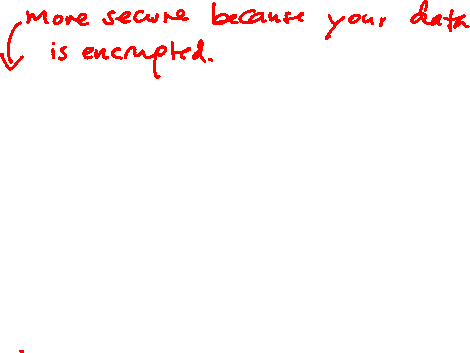 more secure because your data
is encrypted.